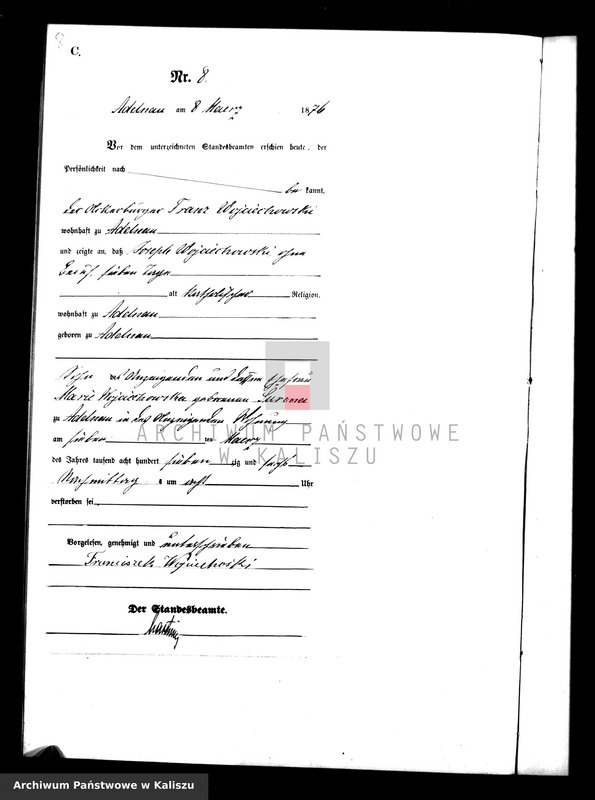 8
C.
Nr. 8.
Adelnau am 8 Maerz 1876
Vor dem unterzeichneten Standesbeamten erschien heute, der
Persönlichkeit nach
be kannt,
der Ackerbürger Franz Wojciechowski
wohnhaft zu Adelnau
und zeigte an, daß Joseph Wojciechowski ohne
Beruf, sieben Tage
alt katholischer Religion,
wohnhaft zu Adelnau
geboren zu Adelnau
Sohn des Anzeigenden und dessen Ehefrau
Marie Wojciechowska geborenen
zu Adelnau in des Anzeigenden Wohnung
am sieben ten Maerz
des Jahres tausend acht hundert sieben zig und sechs
Nachmittag s um acht Uhr
verstorben sei
Vorgelesen, genehmigt und unterschrieben
Franciszek Wojciechoski
Der Standesbeamte.
ARCHIWUM PAŃSTWOWE
W KALISZU
Archiwum Państwowe w Kaliszu